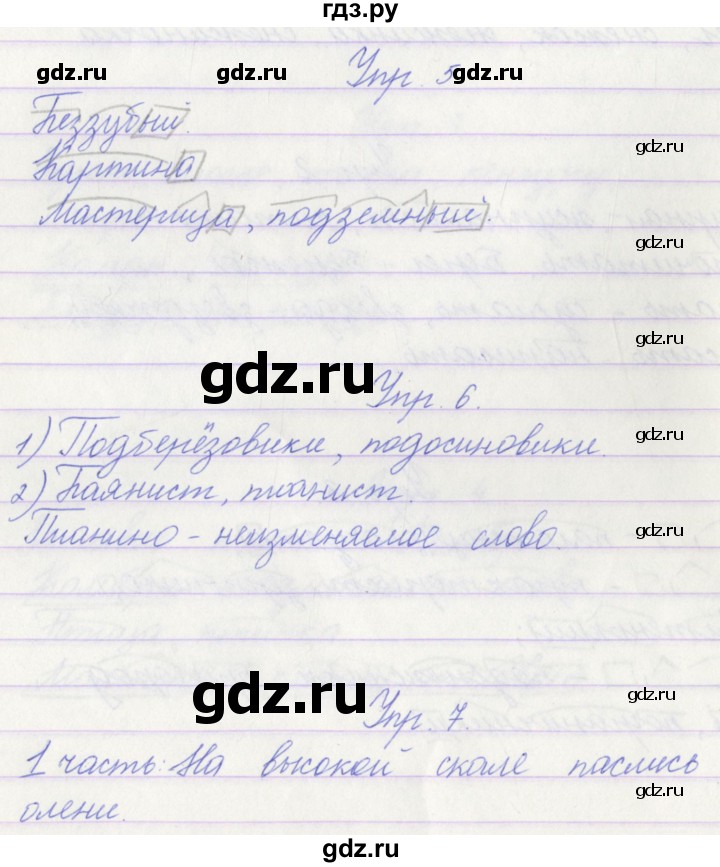 гдз.ру
gdz.ru gdz.ru gdz.ru
Упр. 5
Беззубый.
gdz.ru
Картина
Мастерица, подземный.
gdz.ru
gdz.ru
gdz.ru
Упр. 6.
1) Подберёзовики, подосиновики.
gdz.ru
2) Баянист, пианист.
Пианино - неизменяемое слово.
gdz.ru
gdz.ru
gdz.ru
Упр. 7
1 часть: На высокой скале паслись
олени.
gdz.ru
gdz.ru